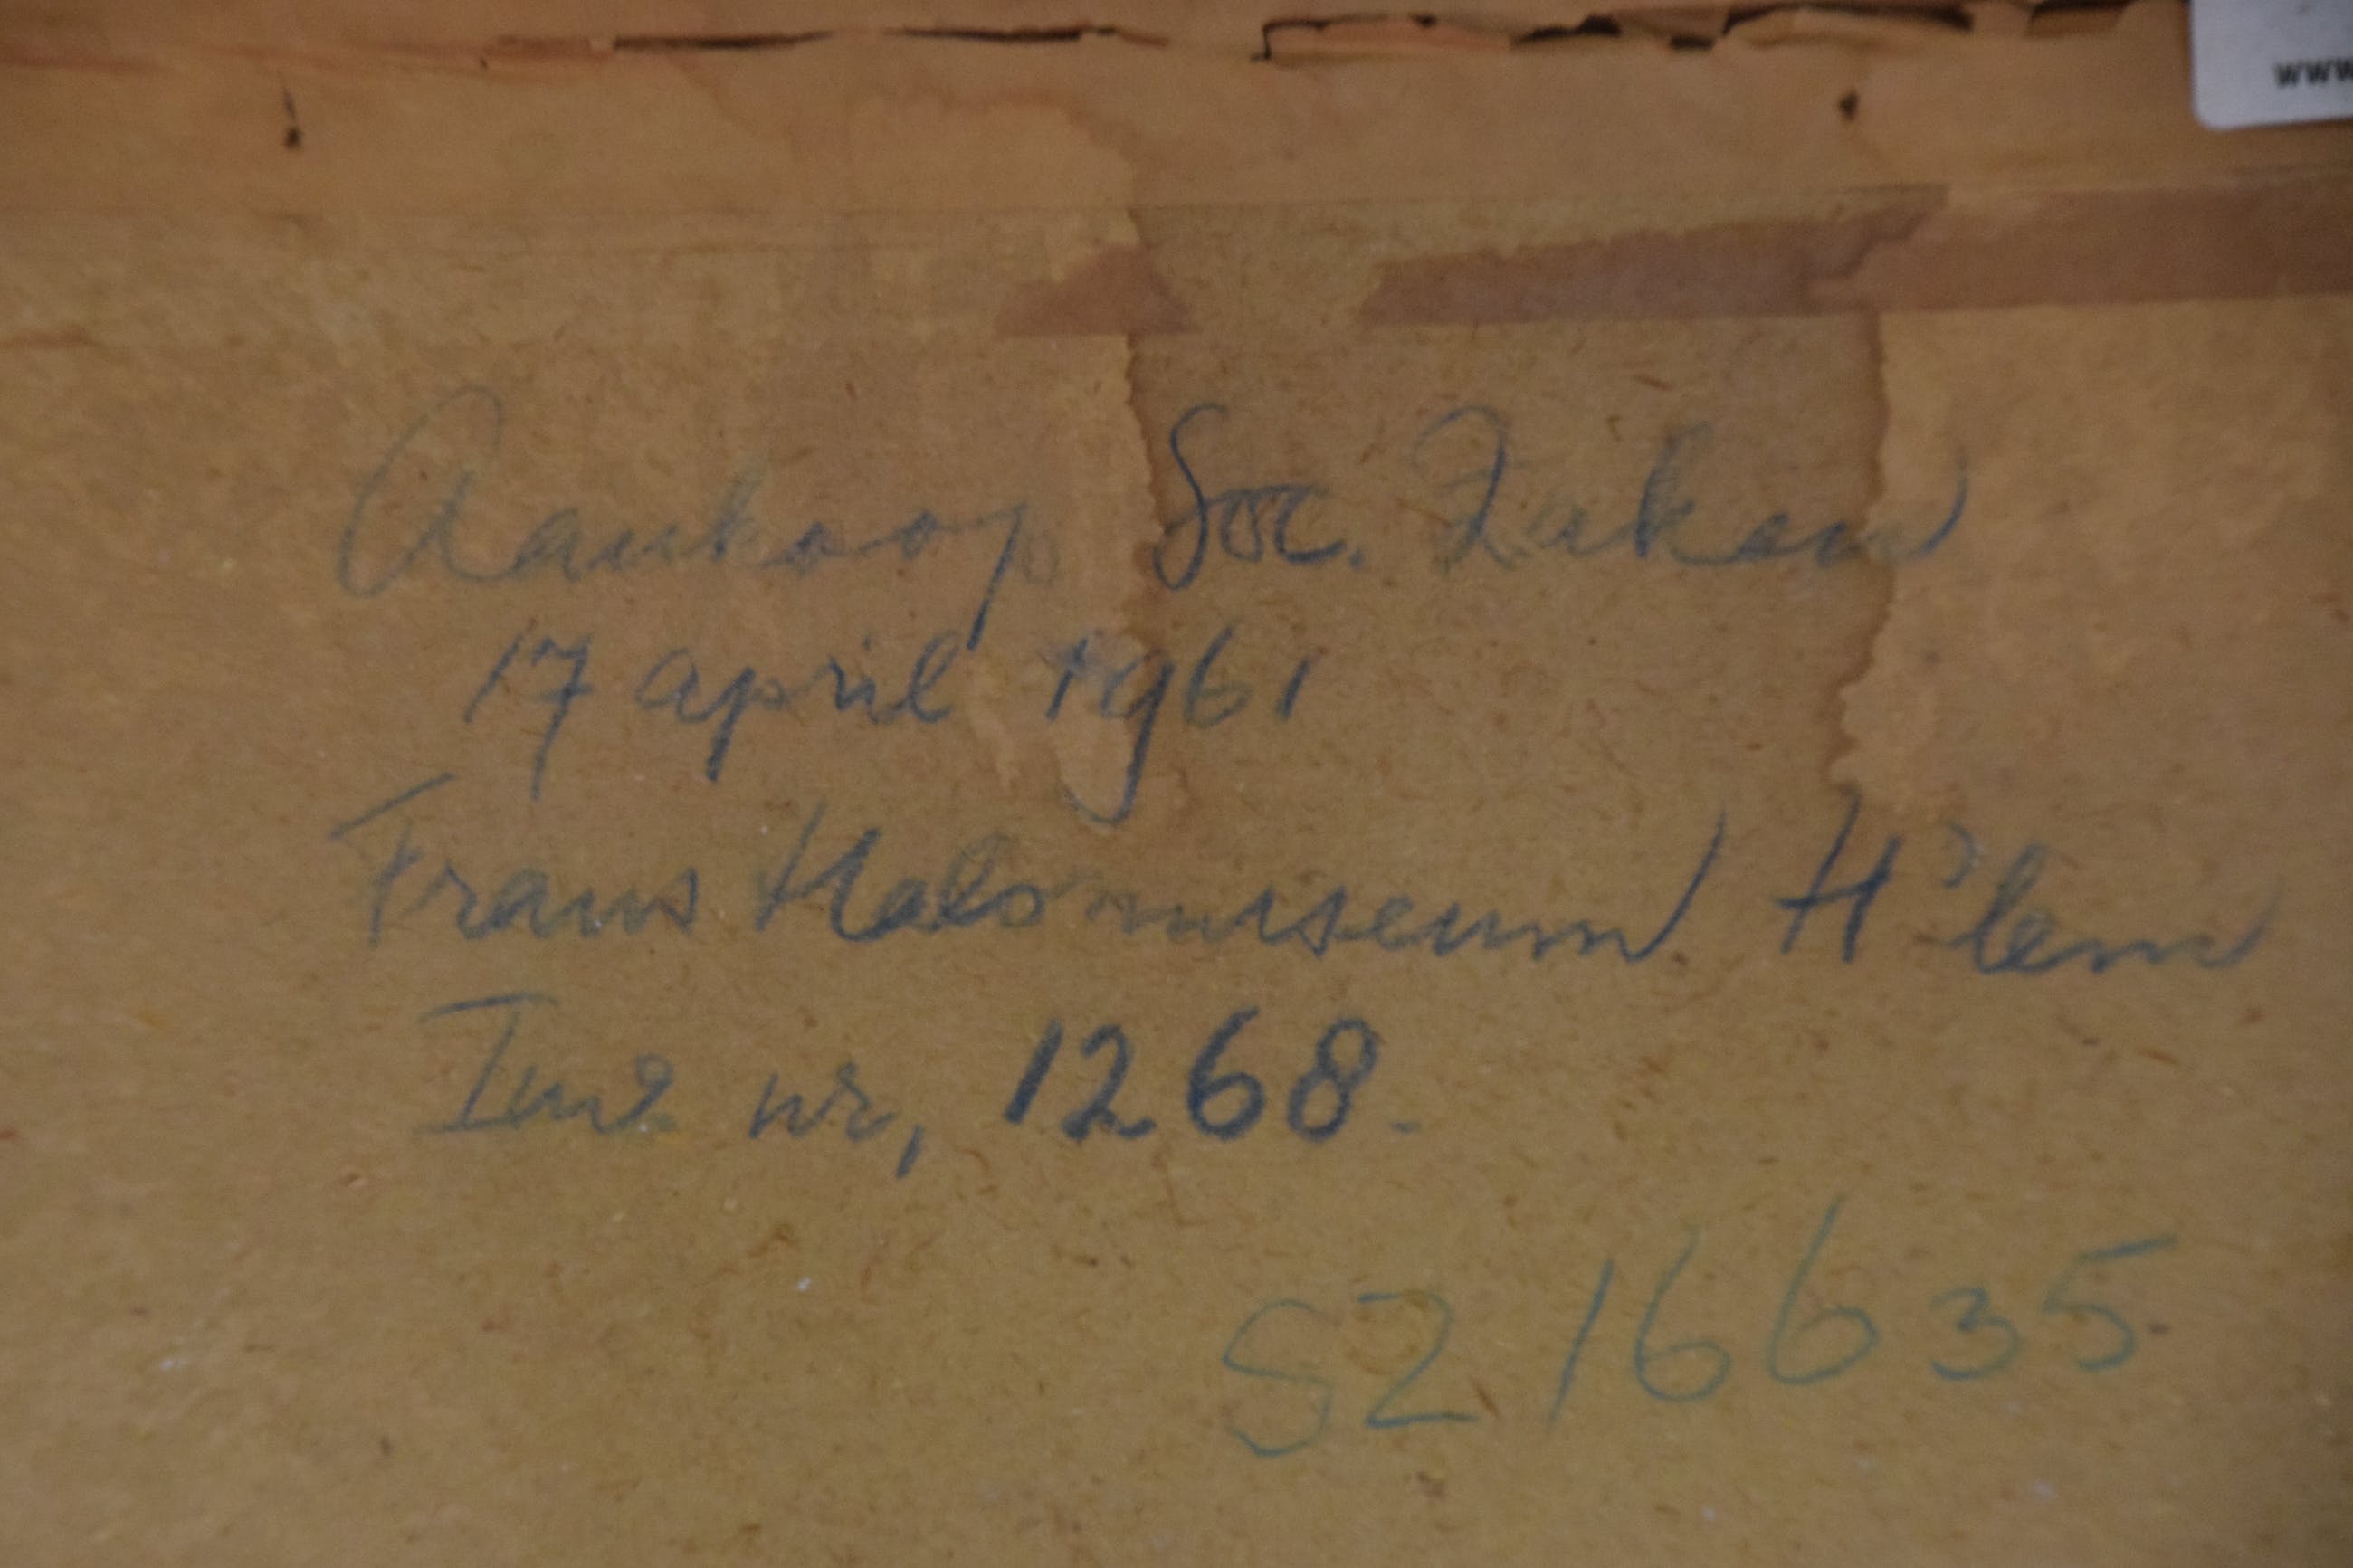 www
Aankoop Soc. Zaken
17 april 1961
Frans Halsmuseum H'lem
Inv. nr, 1268.
SZ 16635